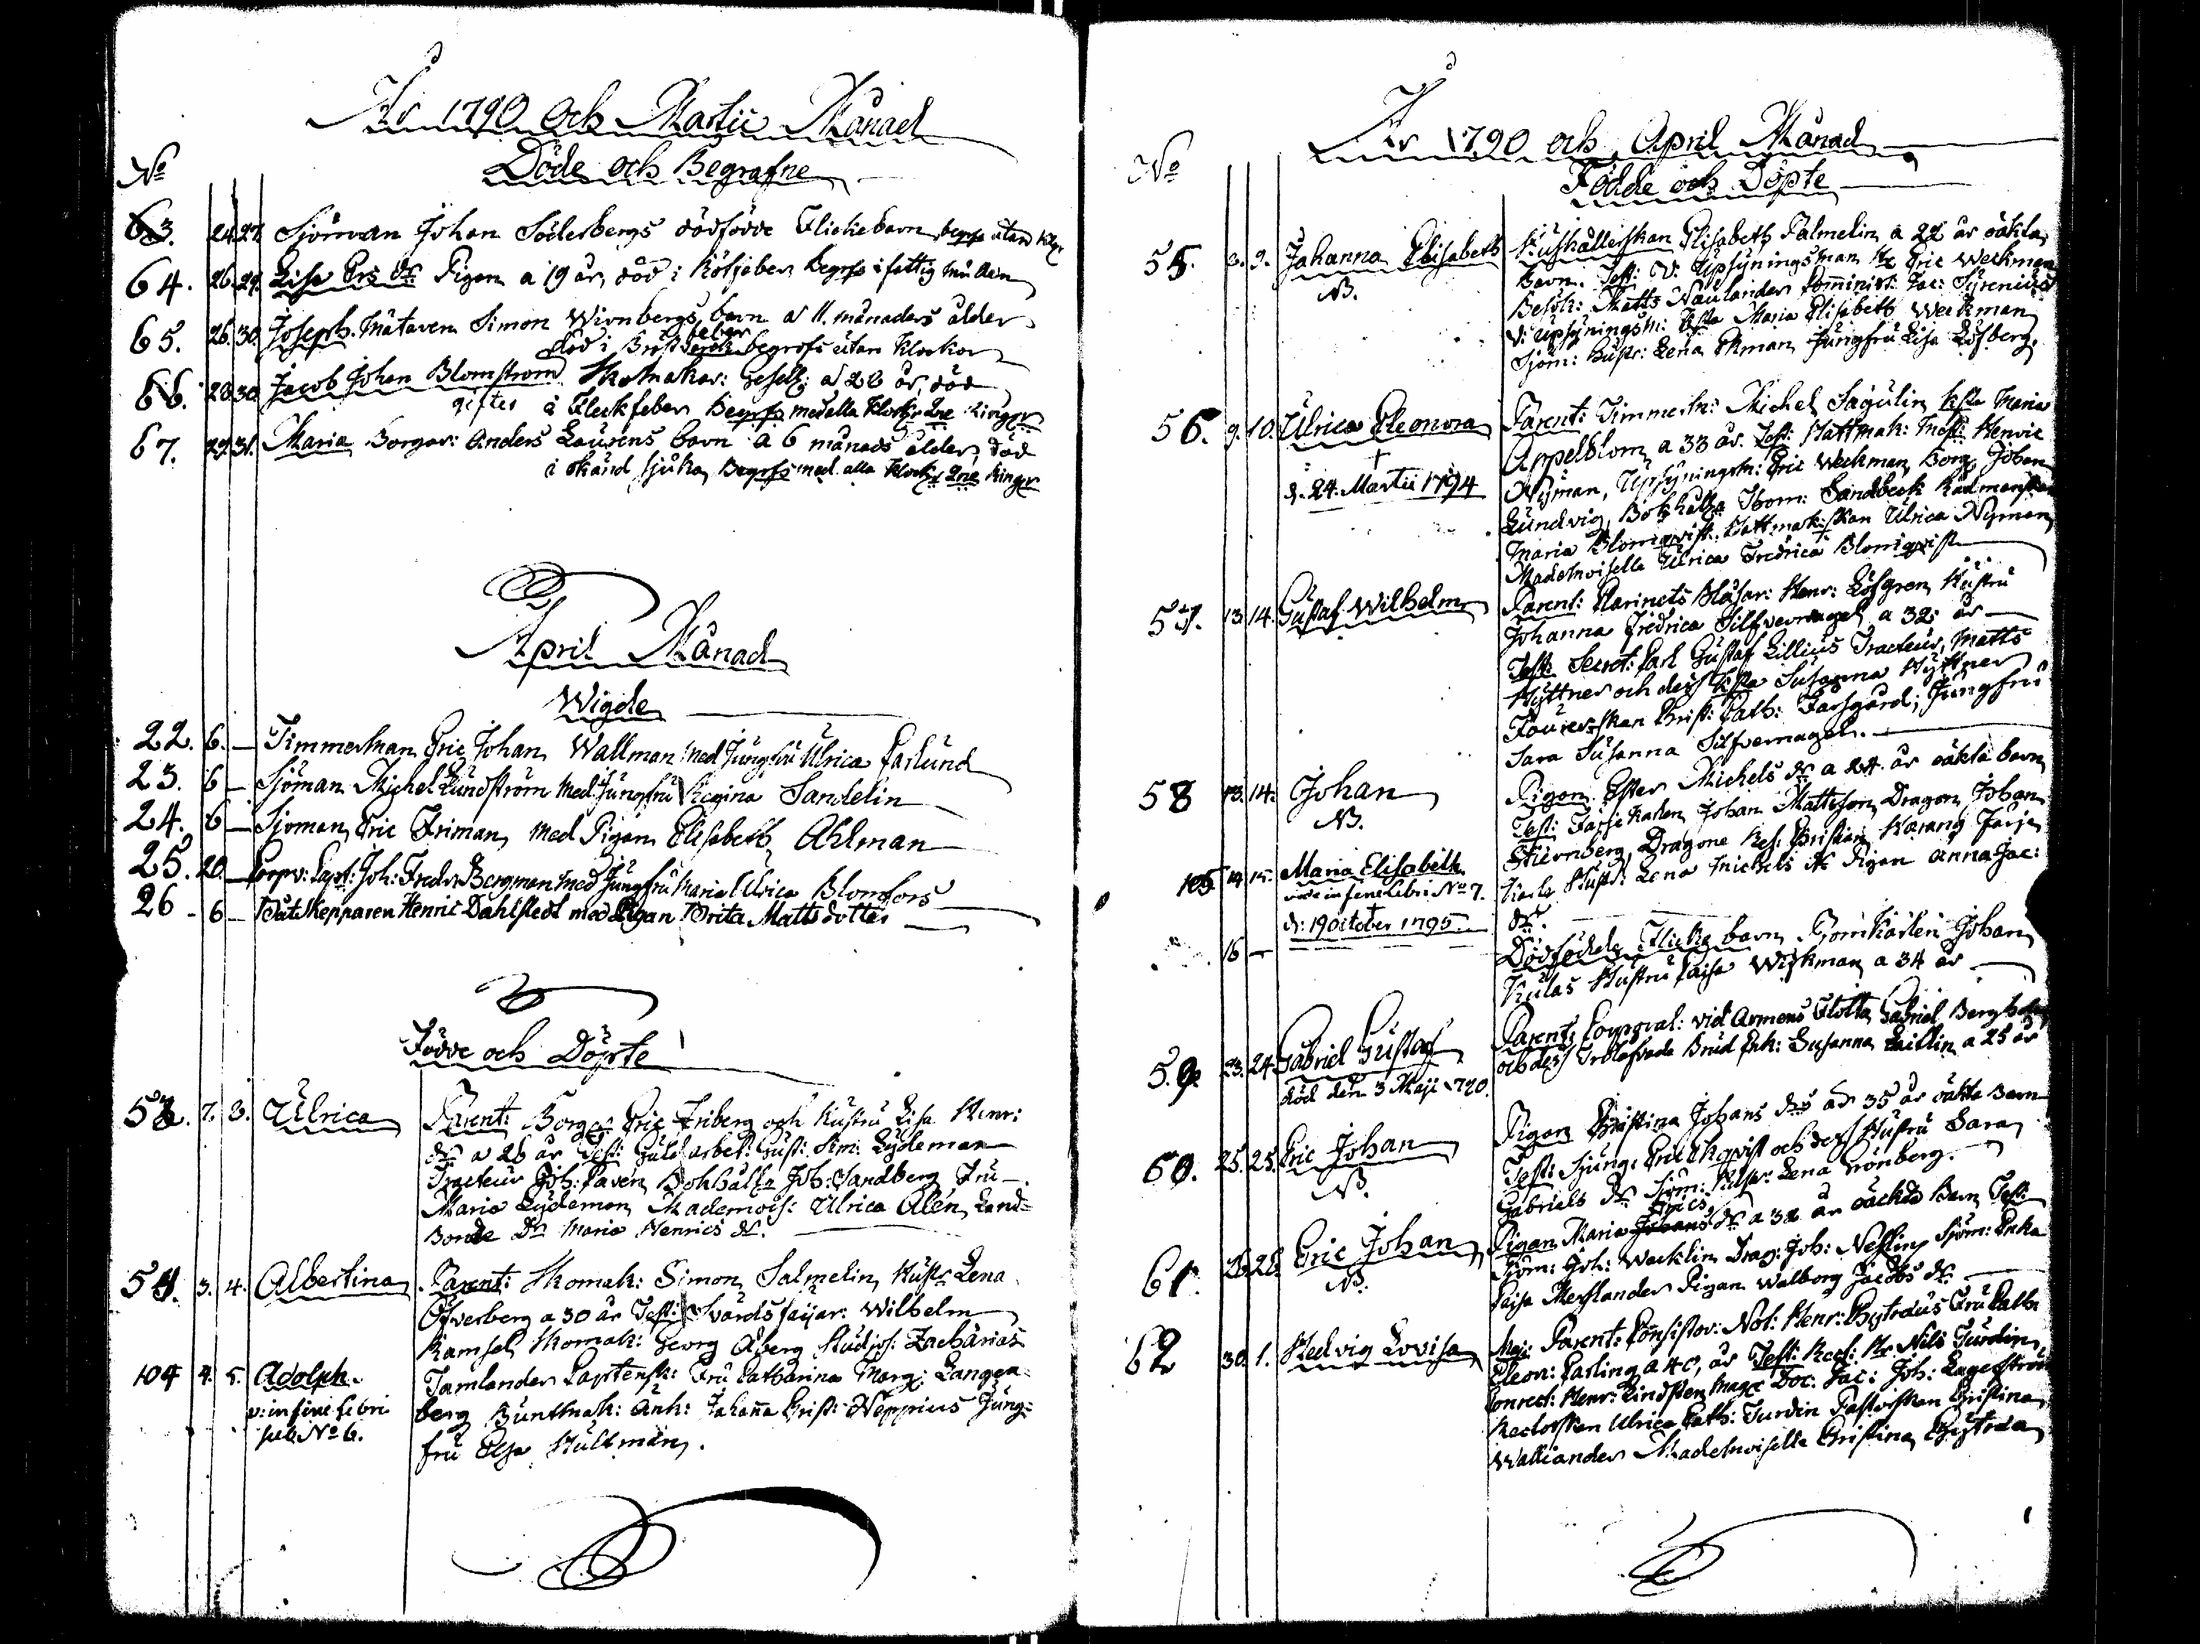 År 1790 och Martii Månad
Döde och Begrafne
No
63. 24. 27. Sjöman Johan Söderbergs dödfödde Flickebarn begrofs utan klockor
64. 26. 29. Lisa Ers dr Pigan a 19 år, död i Rötfeber, begrofs i fattig mullen
65. 26. 30. Joseph. Mätaren Simon Wirnbergs barn a 11. månaders ålder
feber
död i Bröst begrofs utan klockor
66. 28. 30. Jacob Johan Blomström Skomakar: Gesell: a 26 år, död
giftes i Fleckfeber Begrofs med alla klockor 2ne ringr
67. 29. 31. Maria Borgar: Anders Laurens barn a 6 månads ålder, död
i okänd sjuka, Begrofs med alla klockr 2ne ringr
April Månad
Wigde
22. 6. — Timmerman Eric Johan Wallman med Jungfru Ulrica Farlund
23. 6 — Sjöman Michel Lundström med Jungfru Regina Sandelin
24. 6 — Sjöman Eric Friman, med Pigan Elisabeth Ahlman
25. 20. — Joh: Fredr Bergman med Jungfru Maria Ulrica Blomfors
26 - 6 — Båtskepparen Henric Dahlstedt med Pigan Brita Matts dotter
Födde och Döpte
53. 7. 3. Ulrica Parent: Borgar Eric Friberg och Hustru Lisa Henr:
dr a 26 år Test: Guld arbet: Gust: Sim: Lydeman
Tracteur Joh: Paven, Bokhålln Joh: Sandberg Fru
Maria Lydeman, Mademois: Ulrica Alén, Land=
Bonde Dr Maria Henrics dr.
54. 3. 4. Albertina Parent: Skomak: Simon Salmelin, Hustr Lena
Öfverberg a 30 år Test: Svärdsfäjar: Wilhelm
Ramsel, Skomak: Georg Åberg Studios: Zacharias
104 4. 5. Adolph. Tamlander Captensk: Fru Catharina Marg: Langen=
v: in fine libri berg Buntmak: Änk: Johanna Christ: Neppius Jung=
sub No 6. fru Elsa Hultman.
År 1790 och April Månad
No
Födde och Döpte
55. 3. 9. Johanna Elisabeth Elisabeth Palmelin a 22 år oäkta
NB. Barn. Test: V: Upsyningsman Hr Eric Weckman
Besök: Matts Naulander Comminist: Jac: Sirenius
V: Upsyningsm: Hsta Maria Elisabeth Weckman,
Sjöm: Hustr: Lena Ekman Jungfru Lisa Löfberg.
56. 9. 10. Ulrica Eleonora Parent: Timmerm: Michel Sagulin Hsta Maria
† Appelblom, a 33 år. Test: Hattmak: Mäst: Henric
d: 24. Martii 1794 Nyman, Upsyningsm: Eric Weckman, Borg: Johan
Lundvig, Bokhålla: Thom: Sandbeck Rådmanskan
Maria Blomqvist, Hattmak:skan Ulrica Nyman,
Mademoiselle Ulrica Fredrica Blomqvist
57. 13. 14. Gustaf Wilhelm Parent: Clarinets Blåsar: Henr: Löfgren, Hustru
Johanna Fredrica Silfvernagel, a 32 år
Test: Secret: Carl Gustaf Lillius Tracteur, Matts
Hyttner och dess Hsta Susanna Hyttner
Christ: Cath: Farsgård; Jungfru
Sara Susanna Silfvernagel.
58 13. 14. Johan Pigan Ester Michels dr a 24 år oäkta barn
NB. Test: Farje Karlen Johan Mattsson, Dragon Johan
Stiernberg, Dragone Christian Farje
105 14. 15. Maria Elisabeth Karls Hustr: Lena Michels dr Pigan Anna Jac:
vide in fine libri No 7. dr.
†
d: 19 October 1795.
16 — Dödfödde Flicke barn, Johan
Kulas Hustru Caisa Wickman, a 34 år
59. 23. 24. Gabriel Gustaf Parent: Corporal: vid Armens Flotta, Gabriel Bergholm
död den 3 Maji 1790. och dess Trolofvade Brud Enk: Susanna Laitlin, a 25 år
60. 25. 25. Eric Johan Pigan Christina Johans dr a 35 år oäkta Barn
NB. Test: Sjung: Eric Ekqvist och dess Hustru Sara
Gabriels dr Sjöm: Hustr: Lena Grönberg.
Erics
61. 26. 28. Eric Johan Pigan Maria Johans dr a 32 år oäckta Barn, Test:
NB. Sjöm: Joh: Wecklin, Drag: Joh: Neslin, Sjöm: Enka
Caisa Pigan Walborg Jacobs dr.
62 30. 1. Hedvig Lovisa Maj: Parent: Consistor: Not: Henr: Bytræus Fru Cath:
Eleon: Carling a 40, år Test: Rect: Hr Nils Turdin,
Conrect: Henr: Lindsten, Mag: Doc: Jac: Joh: Lagerström
Rectorskan Ulrica Cath: Turdin Pastorskan Christina
Wallander Mademoiselle Christina Bytræa